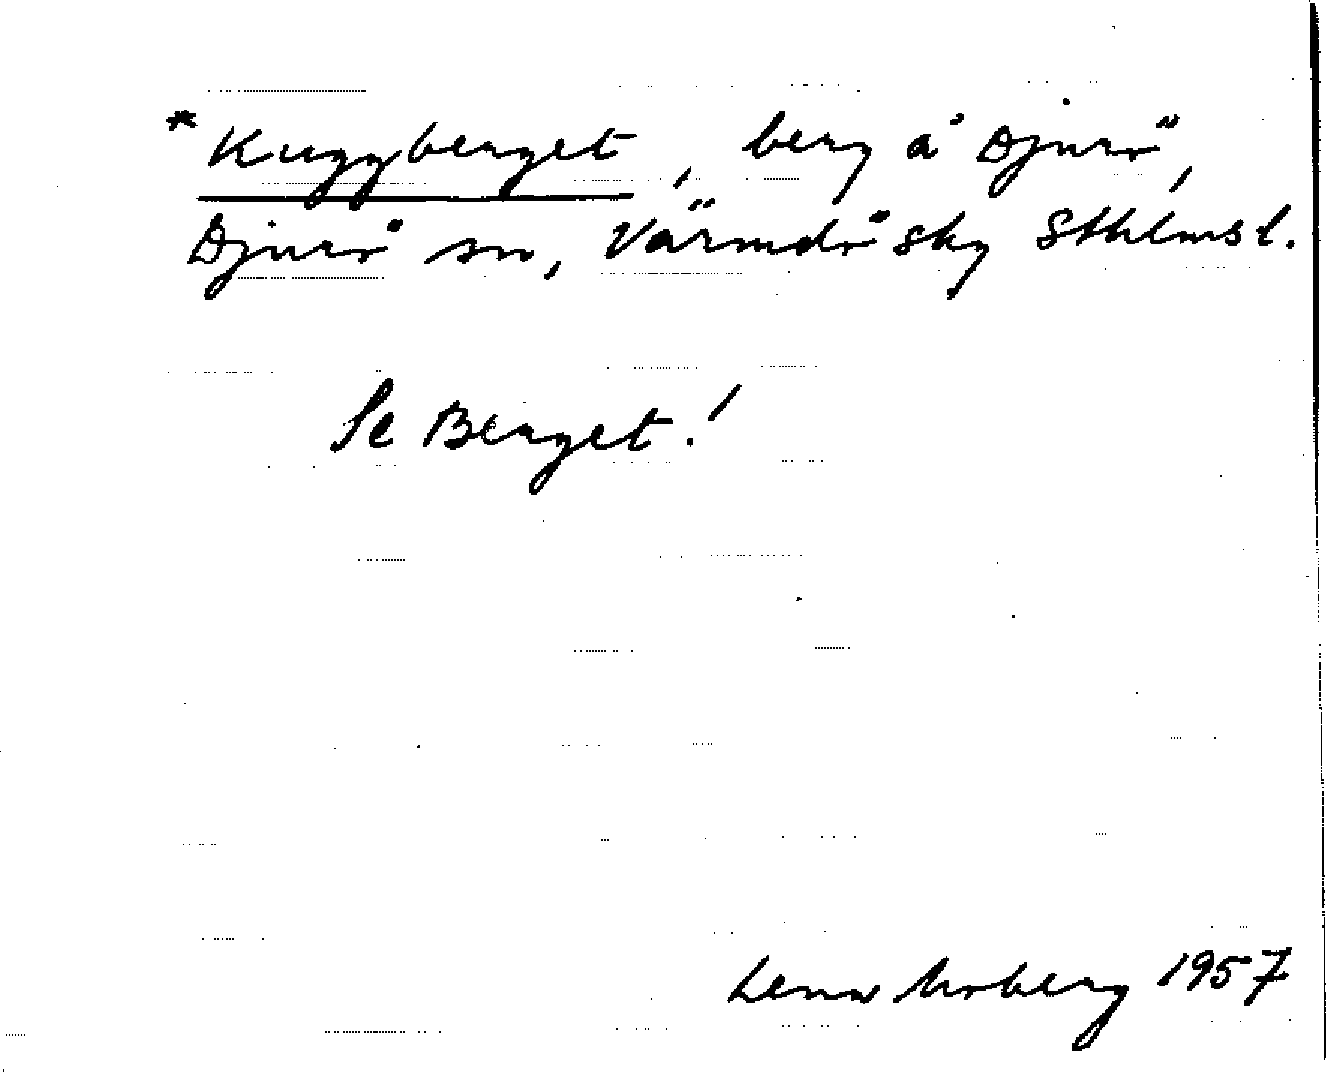 *Kuggberget, berg å Djurö,
Djurö sn, Värmdö sky Sthlmsl.
Se Berget!
Lena Moberg 1957